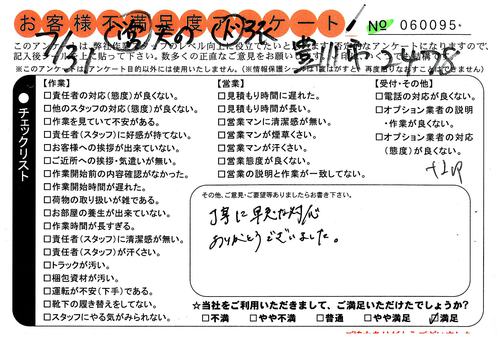 お客様不満足度アンケート！
№ 060095
このアンケートは、弊社作業
記入後
※このアンケートはアンケート目的以外には使用いたしません。
チェックリスト
【作業】
□責任者の対応(態度)が良くない。
□他のスタッフの対応(態度)が良くない。
□作業を見ていて不安がある。
□責任者(スタッフ)に好感が持てない。
□お客様への挨拶が出来ていない。
□ご近所への挨拶・気遣いが無い。
□作業開始前の内容確認がなかった。
□作業開始時間が遅れた。
□荷物の取り扱いが雑である。
□お部屋の養生が出来ていない。
□作業時間が長すぎる。
□責任者(スタッフ)に清潔感が無い。
□責任者(スタッフ)が汗くさい。
□トラックが汚い。
□梱包資材が汚い。
□運転が不安(下手)である。
□靴下の履き替えをしてない。
□スタッフにやる気がみられない。
【営業】
□見積もり時間に遅れた。
□見積もり時間が長い。
□営業マンに清潔感が無い。
□営業マンが煙草くさい。
□営業マンが汗くさい。
□営業態度が良くない。
□営業の説明と作業が一致してない。
【受付・その他】
□電話の対応が良くない。
□オプション業者の説明
・作業が良くない。
□オプション業者の対応
(態度)が良くない。
その他、ご意見・ご要望等ありましたらお書き下さい。
丁寧に早々な対応
ありがとうございました。
☆当社をご利用いただきまして、ご満足いただけたでしょうか？
□不満 □やや不満 □普通 □やや満足 ☑満足